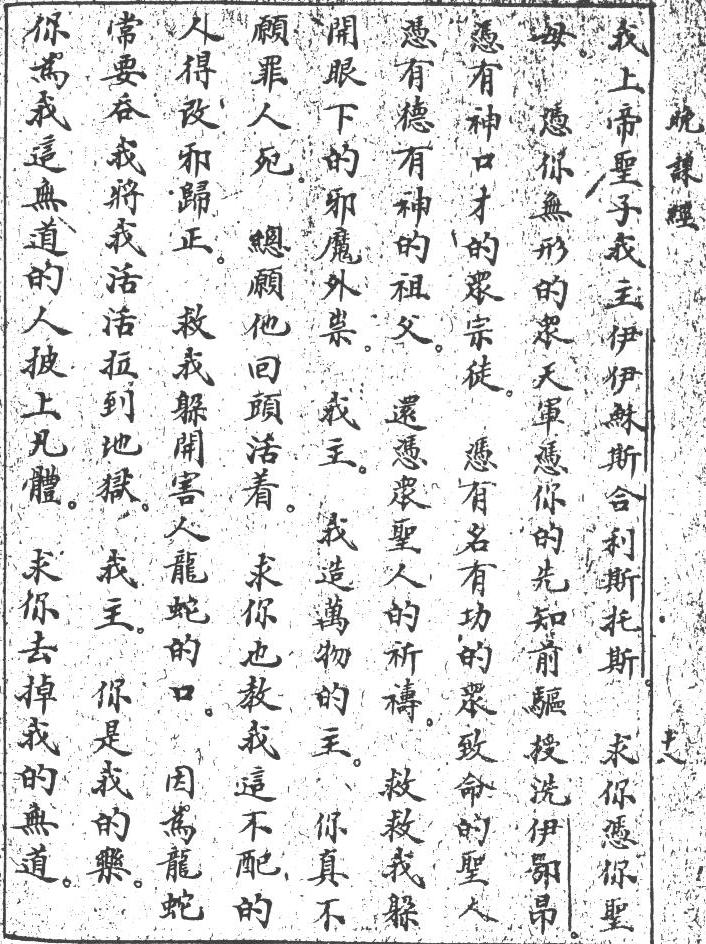 晚課經
十八
我上帝聖子我主伊伊穌斯合利斯托斯。 求你憑你聖
母。 憑你無形的眾天軍憑你的先知前驅授洗伊鄂昂。
憑有神口才的眾宗徒。 憑有名有功的眾致命的聖人
憑有德有神的祖父。 還憑眾聖人的祈禱。 救救我躲
開眼下的邪魔外祟。 我主。 我造萬物的主。 你真不
願罪人死。 總願他回頭活着。 求你也教我這不配的
人得改邪歸正。 救我躲開害人龍蛇的口。 因為龍蛇
常要吞我將我活活拉到地獄。 我主。 你是我的樂。
你為我這無道的人披上凡體。 求你去掉我的無道。